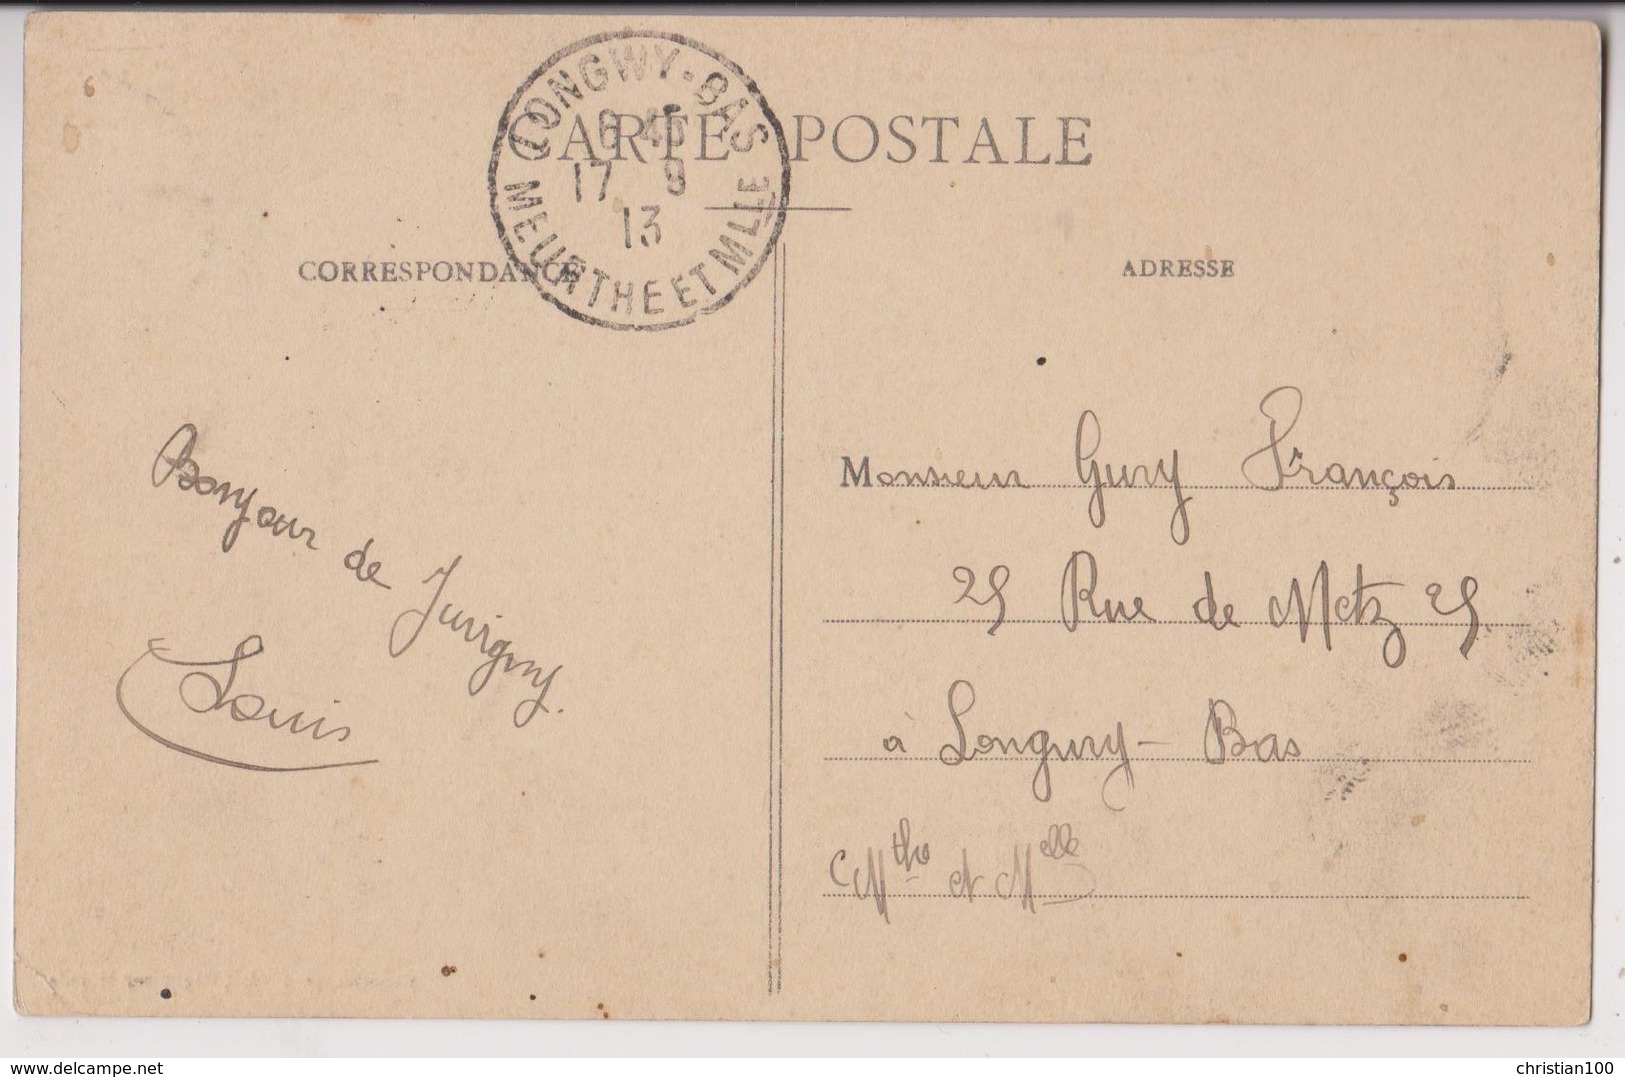 LONGWY-BAS
6 45
17 9
13
MEURTHE ET MLLE
CARTE POSTALE
CORRESPONDANCE
ADRESSE
Bonjour de Juvigny.
Louis
Monsieur Gury François
25 Rue de Metz 25
à Longwy-Bas
Mthe et Melle
delcampe.net
christian100